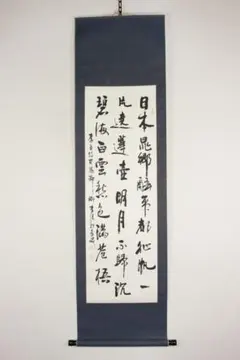 日本晁卿辞帝都征帆一
片遶蓬壷明月不歸沉
碧海白雲愁色滿蒼梧